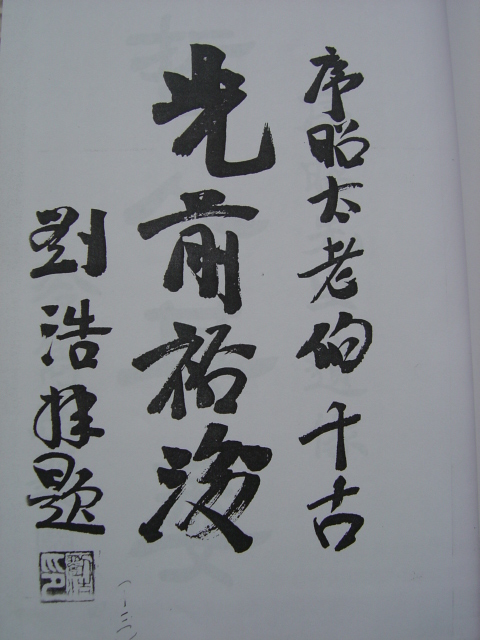 序昭太老伯千古
光前裕後
劉浩拜題
(一三一)